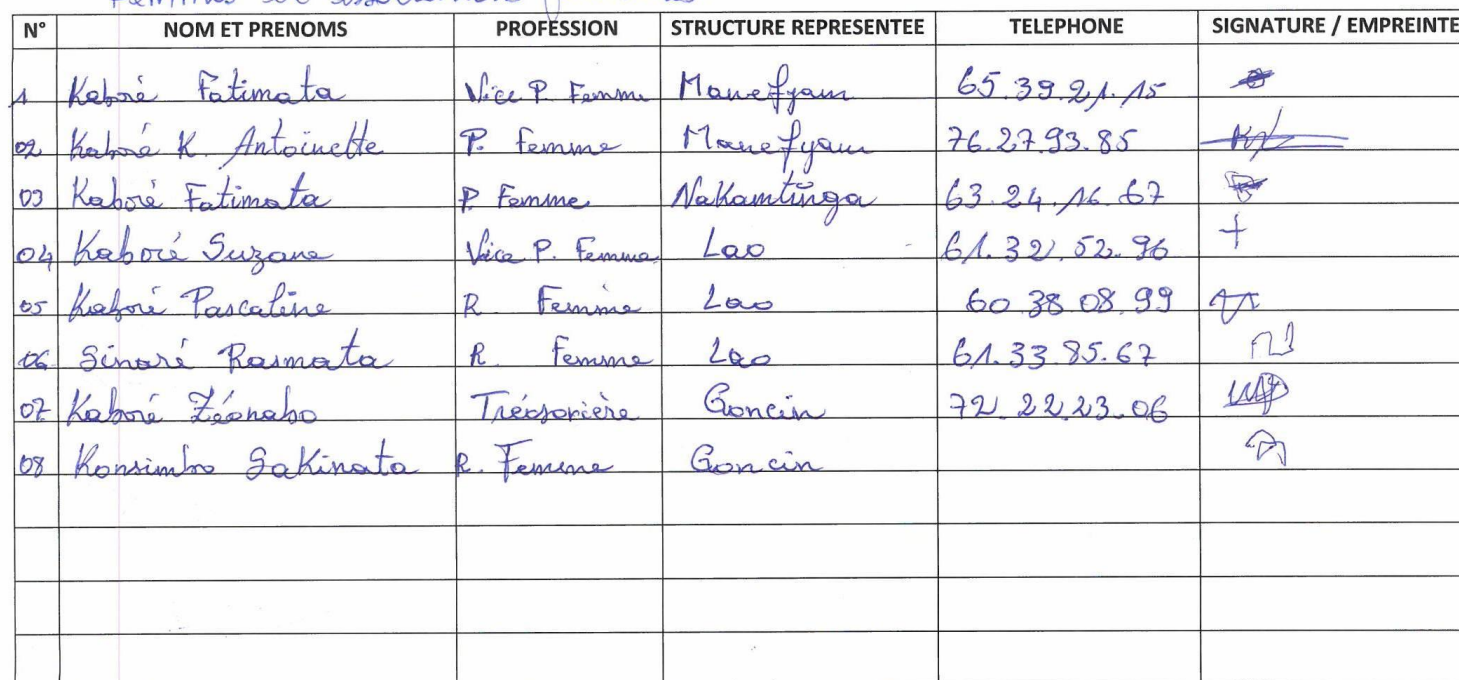 N° NOM ET PRENOMS PROFESSION STRUCTURE REPRESENTEE TELEPHONE SIGNATURE / EMPREINTE
1 Kaboré Fatimata Vice P. Femme Manefyam 65.39.21.15
02 Kaboré K. Antoinette P. Femme Manefyam 76.27.93.85
03 Kaboré Fatimata P Femme Nakamtinga 63.24.16.67
04 Kaboré Suzane Vice P. Femme Lao 61.32.52.96 +
05 Kaboré Pascaline R Femme Lao 60.38.08.99
06 Sinaré Rasmata R. Femme Lao 61.33.85.67
07 Kaboré Zéonabo Trécsorière Goncin 72.22.23.06
08 Konsimbo Sakinata R. Femme Goncin